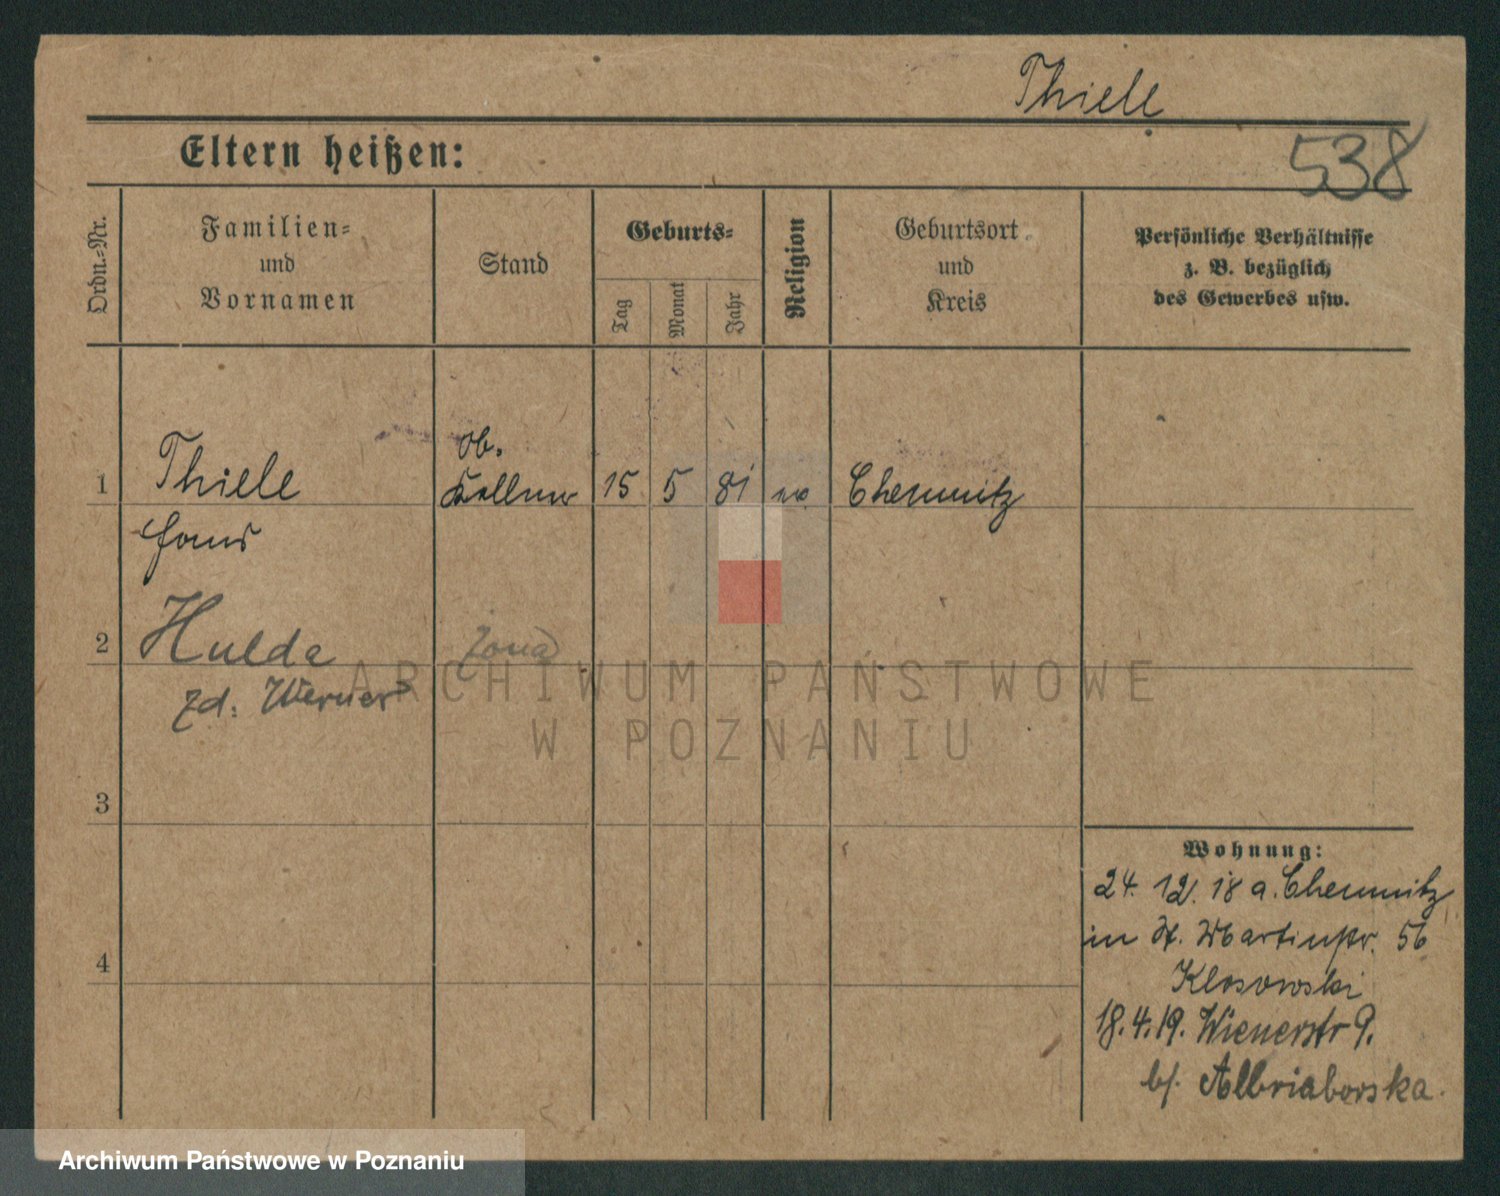 Thiele
538
Eltern heißen:
Ordn.-Nr.
Familien-
und
Vornamen
Stand
Geburts-
Tag
Monat
Jahr
Religion
Geburtsort
und
Kreis
Persönliche Verhältnisse
z. B. bezüglich
des Gewerbes usw.
1
Thiele
Ob.
Kellner
15
5
81
ev
Chemnitz
Hans
2
Hulda
żona
zd. Werner
ARCHIWUM PAŃSTWOWE
W POZNANIU
3
4
Wohnung:
24. 12. 18 a. Chemnitz
in St. Martinstr. 56
Klosowski
18.4.19. Wienerstr 9.
b/. Albriaborska.
Archiwum Państwowe w Poznaniu